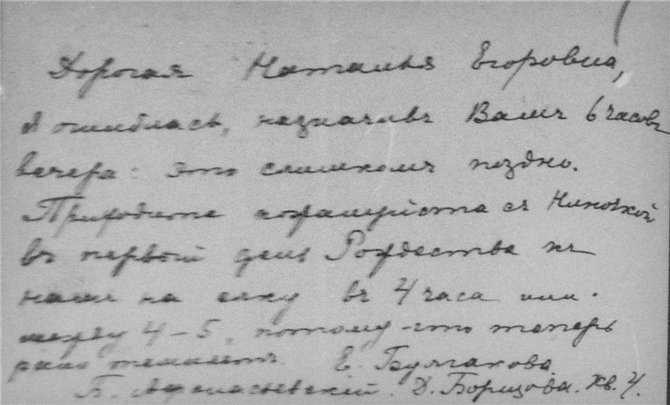 Дорогая Наталья Егоровна,
Я ошиблась, назначивъ Вамъ 6 часовъ
вечера: это слишкомъ поздно.
Приходите пожалуйста съ Ниночкой
въ первый день Рождества къ
намъ на елку въ 4 часа или
между 4-5, потому-что теперь
рано темнеетъ. Е. Булгакова.
Б. Афанасьевский. д. Борисова. кв. 4.